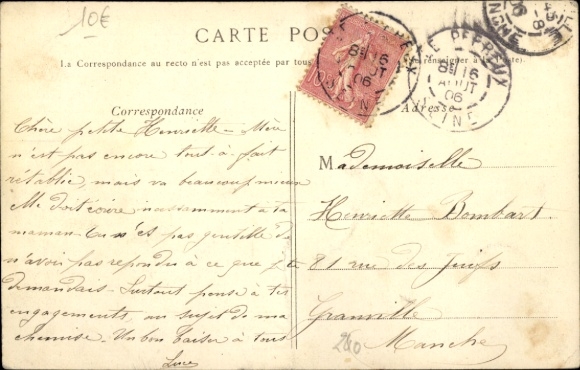 10€
CARTE POS
La Correspondance au recto n'est pas acceptée par tous
renseigner à la
LE PERREUX
8E 16
AOUT
06
SEINE
Correspondance
Adresse
Chère petite Henriette - Mère
n'est pas encore tout-à-fait
rétablie, mais va beaucoup mieux
Elle doit écrire incessamment à ta
maman. Tu n'es pas gentille de
n'avoir pas répondu à ce que je te
demandais. Surtout pense à tes
engagements, au sujet de ma
chemise. Un bon baiser à tous
Luce
Mademoiselle
Henriette Bombart
81 rue des Juifs
Granville
Manche